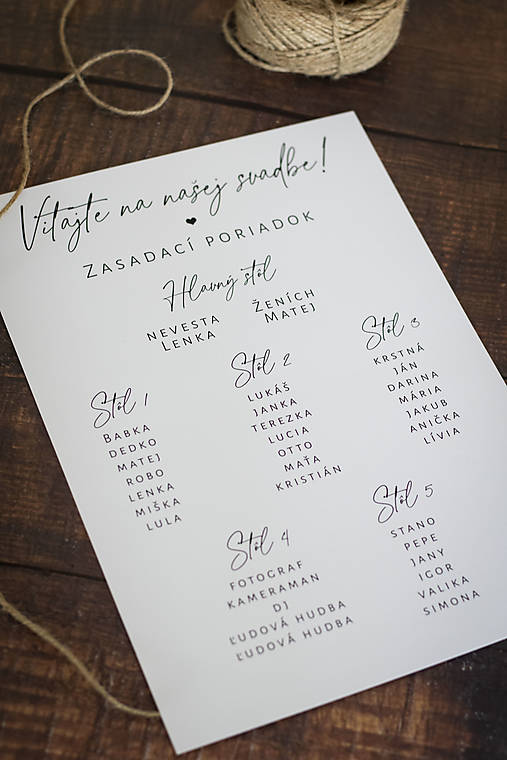 Vitajte na našej svadbe!
ZASADACÍ PORIADOK
Hlavný stôl
NEVESTA
LENKA
ŽENÍCH
MATEJ
Stôl 1
BABKA
DEDKO
MATEJ
ROBO
LENKA
MIŠKA
LULA
Stôl 2
LUKÁŠ
JANKA
TEREZKA
LUCIA
OTTO
MAŤA
KRISTIÁN
Stôl 3
KRSTNÁ
JÁN
DARINA
MÁRIA
JAKUB
ANIČKA
LÍVIA
Stôl 4
FOTOGRAF
KAMERAMAN
DJ
ĽUDOVÁ HUDBA
ĽUDOVÁ HUDBA
Stôl 5
STANO
PEPE
JANY
IGOR
VALIKA
SIMONA